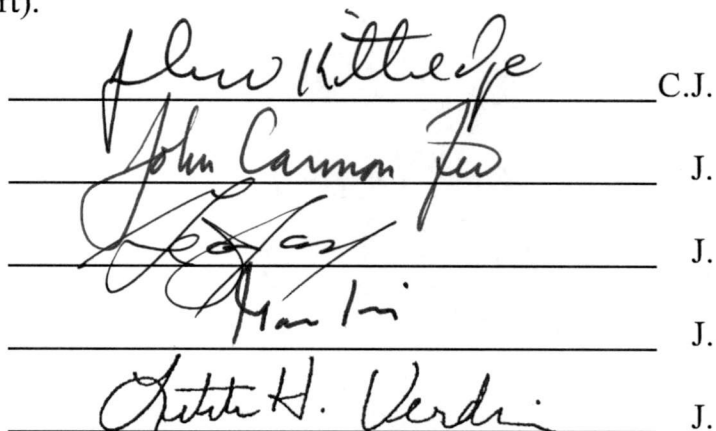 rt).
John Kittredge C.J.
John Cannon Few J.
J.
J.
Letitia H. Verdin J.